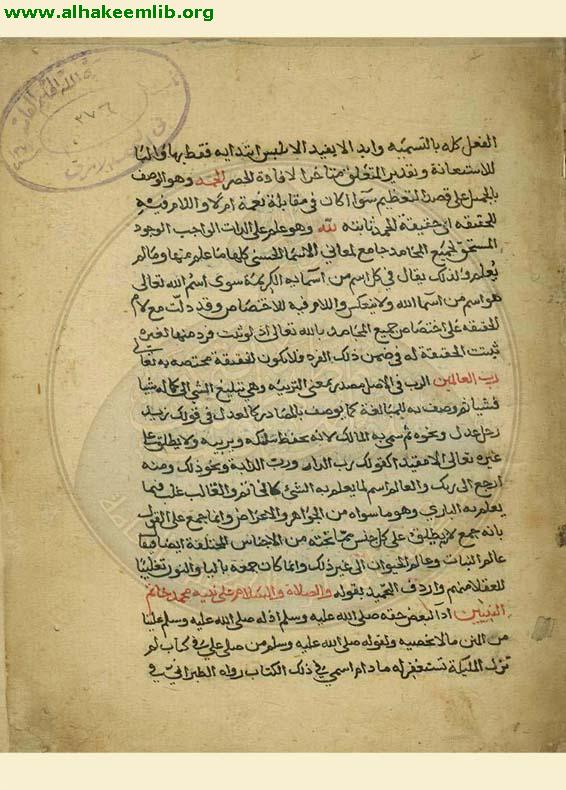 www.alhakeemlib.org
٢٧٠٦
الفعل كله بالتسمية وابد الا يفيد الا تلبس ابتدايه فقط بها والبا
للاستعانة وتقدير المتعلق متاخرا لافادة الحصر الحمد وهو الوصف
بالجميل على قصد التعظيم سوا اكان في مقابلة نعمة ام لا واللام فيه
للحقيقة اي حقيقة الحمد ثابتة لله وهو علم على الذات الواجب الوجود
المستحق لجميع المحامد جامع لمعاني الاسما الحسنى كلها ما علم منها وما لم
يعلم ولذلك يقال في كل اسم من اسمايه الكريمة سوى اسم الله تعالى
هو اسم من اسما الله ولا ينعكس واللام فيه للاختصاص وقد دلت مع لام
الحقيقة على اختصاص جميع المحامد بالله تعالى اذ لو ثبت فرد منها لغيره
ثبتت الحقيقة له في ضمن ذلك الفرد فلا تكون الحقيقة مختصة به تعالى
رب العالمين الرب في الاصل مصدر بمعنى التربية وهي تبليغ الشي الى كماله شيا
فشيا ثم وصف به للمبالغة كما يوصف بالمصادر كالعدل في قولك زيد
رجل عدل ونحوه ثم سمي به المالك لانه يحفظ ملكه ويربيه ولا يطلق على
غيره تعالى الا مقيدا كقولك رب الدار ورب الدابة ونحو ذلك ومنه
ارجع الى ربك والعالم اسم لما يعلم به الشي كالخاتم والقالب غلب فيما
يعلم به الباري وهو ما سواه من الجواهر والاعراض وانما جمع على القول
بانه جمع لانه يطلق على كل جنس مما تحته من الاجناس المختلفة ايضا فيقال
عالم النبات وعالم الحيوان الى غير ذلك وانما كان جمعه باليا والنون تغليبا
للعقلا منهم واردف التحميد بقوله والصلاة والسلام على نبيه محمد خاتم
النبيين ادا لبعض حقه صلى الله عليه وسلم اذ له صلى الله عليه وسلم علينا
من المنن ما لا نحصيه ولقوله صلى الله عليه وسلم من صلى علي في كتاب لم
تزل المليكة تستغفر له ما دام اسمي في ذلك الكتاب رواه الطبراني في